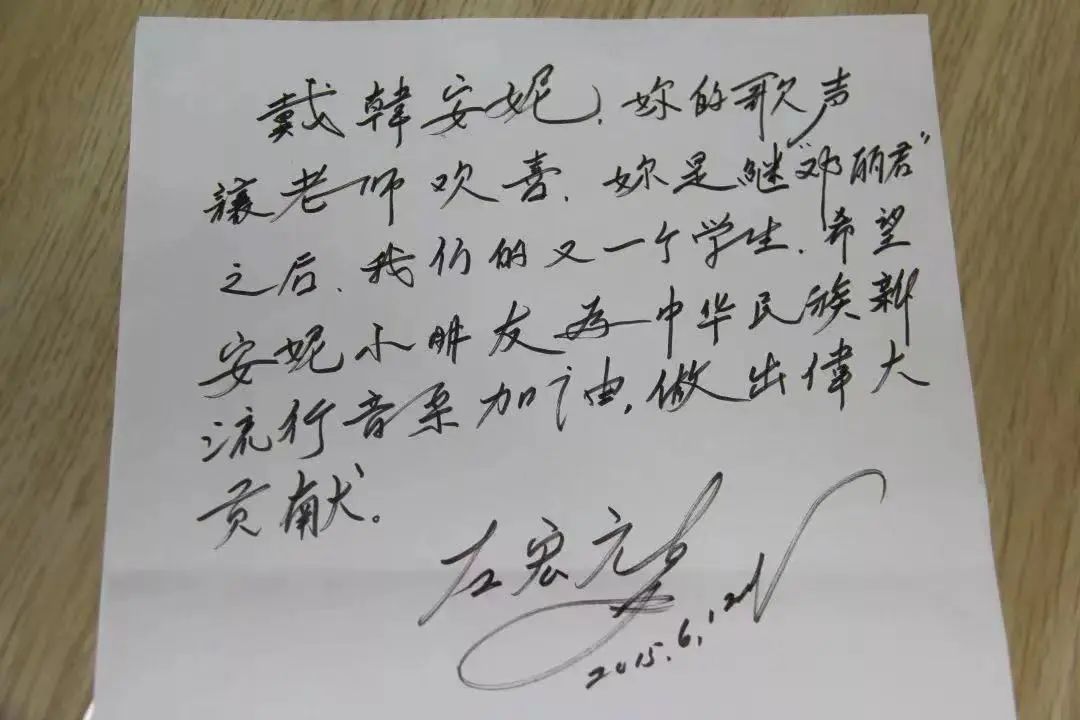 戴韩安妮、妳的歌声
讓老师欢喜、妳是継“邓丽君”
之后、我们的又一个学生、希望
安妮小朋友为中华民族新
流行音乐加油，做出偉大
贡献。
左宏元
2015.6.12